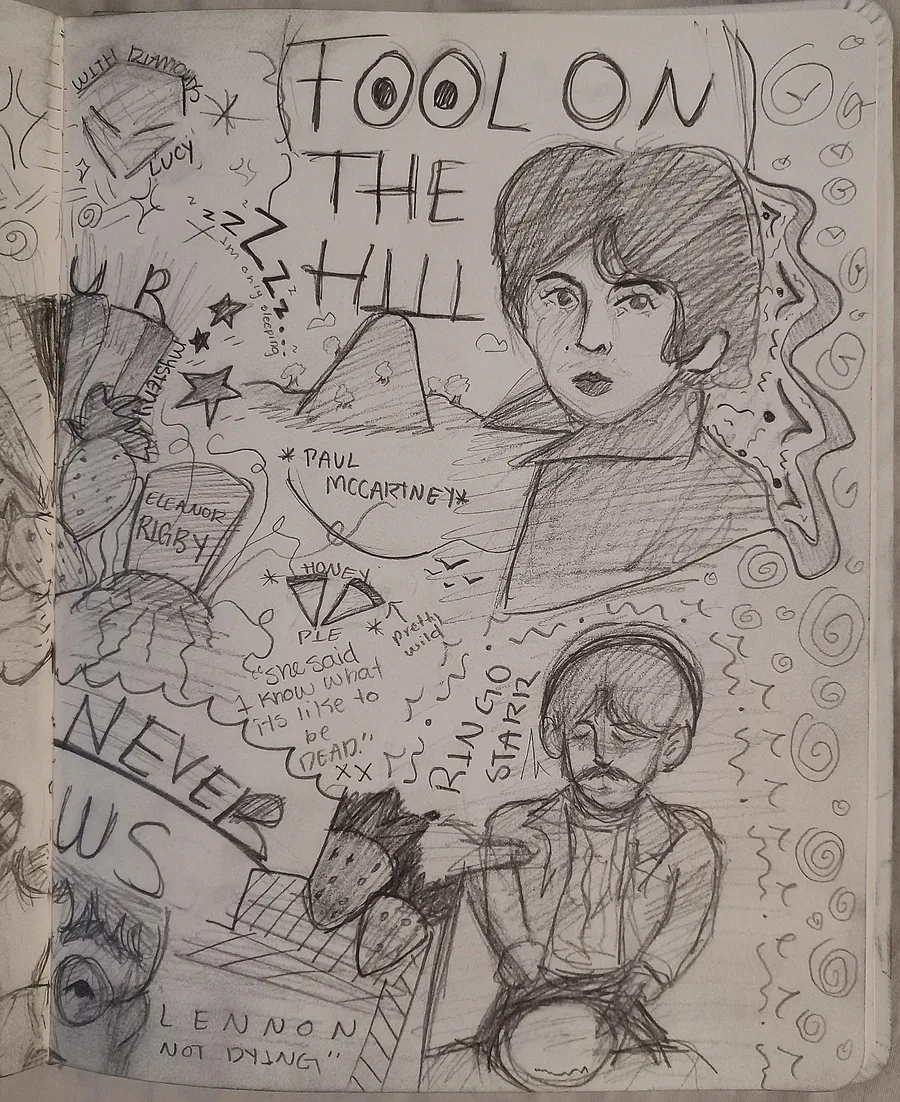 WITH DIAMONDS
LUCY
FOOL ON
THE
HILL
z z Z Z Z Z z z
I'm only sleeping
UR
MYSTERY
* PAUL
MCCARTNEY*
ELEANOR
RIGBY
* HONEY
PIE *
pretty
wild
"she said
I know what
its like to
be
DEAD."
XX
RINGO
STARR
NEVER
WS
LENNON
NOT DYING"